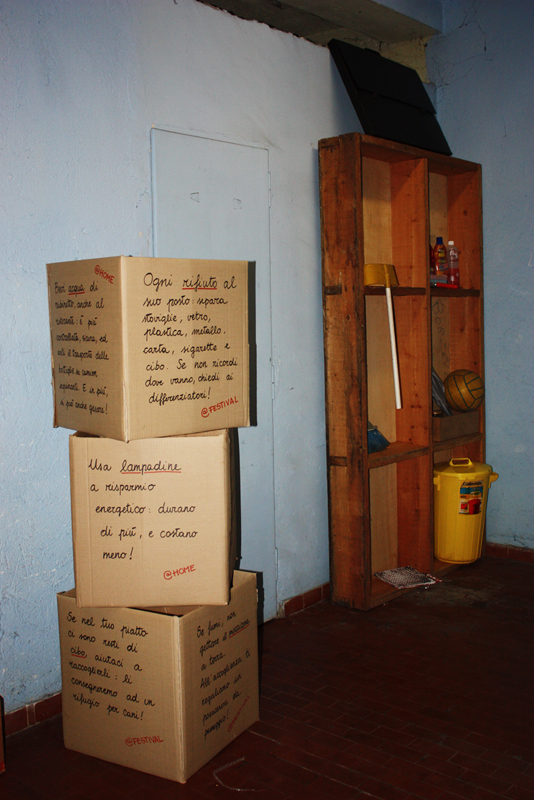 @HOME
Bevi acqua di
rubinetto, anche al
ristorante: è più
controllata, sana, ed
eviti il trasporto delle
bottiglie su camion
inquinanti. E in più,
si può anche gasare!
Ogni rifiuto al
suo posto: separa
stoviglie, vetro,
plastica, metallo,
carta, sigarette e
cibo. Se non ricordi
dove vanno, chiedi ai
differenziatori!
@FESTIVAL
Usa lampadine
a risparmio
energetico: durano
di più, e costano
meno!
@HOME
Se nel tuo piatto
ci sono resti di
cibo aiutaci a
raccoglierli: li
consegneremo ad un
rifugio per cani!
@FESTIVAL
Se fumi, non
gettare il mozzicone
a terra.
All'accoglienza ti
regaliamo un
posacenere da
passeggio!